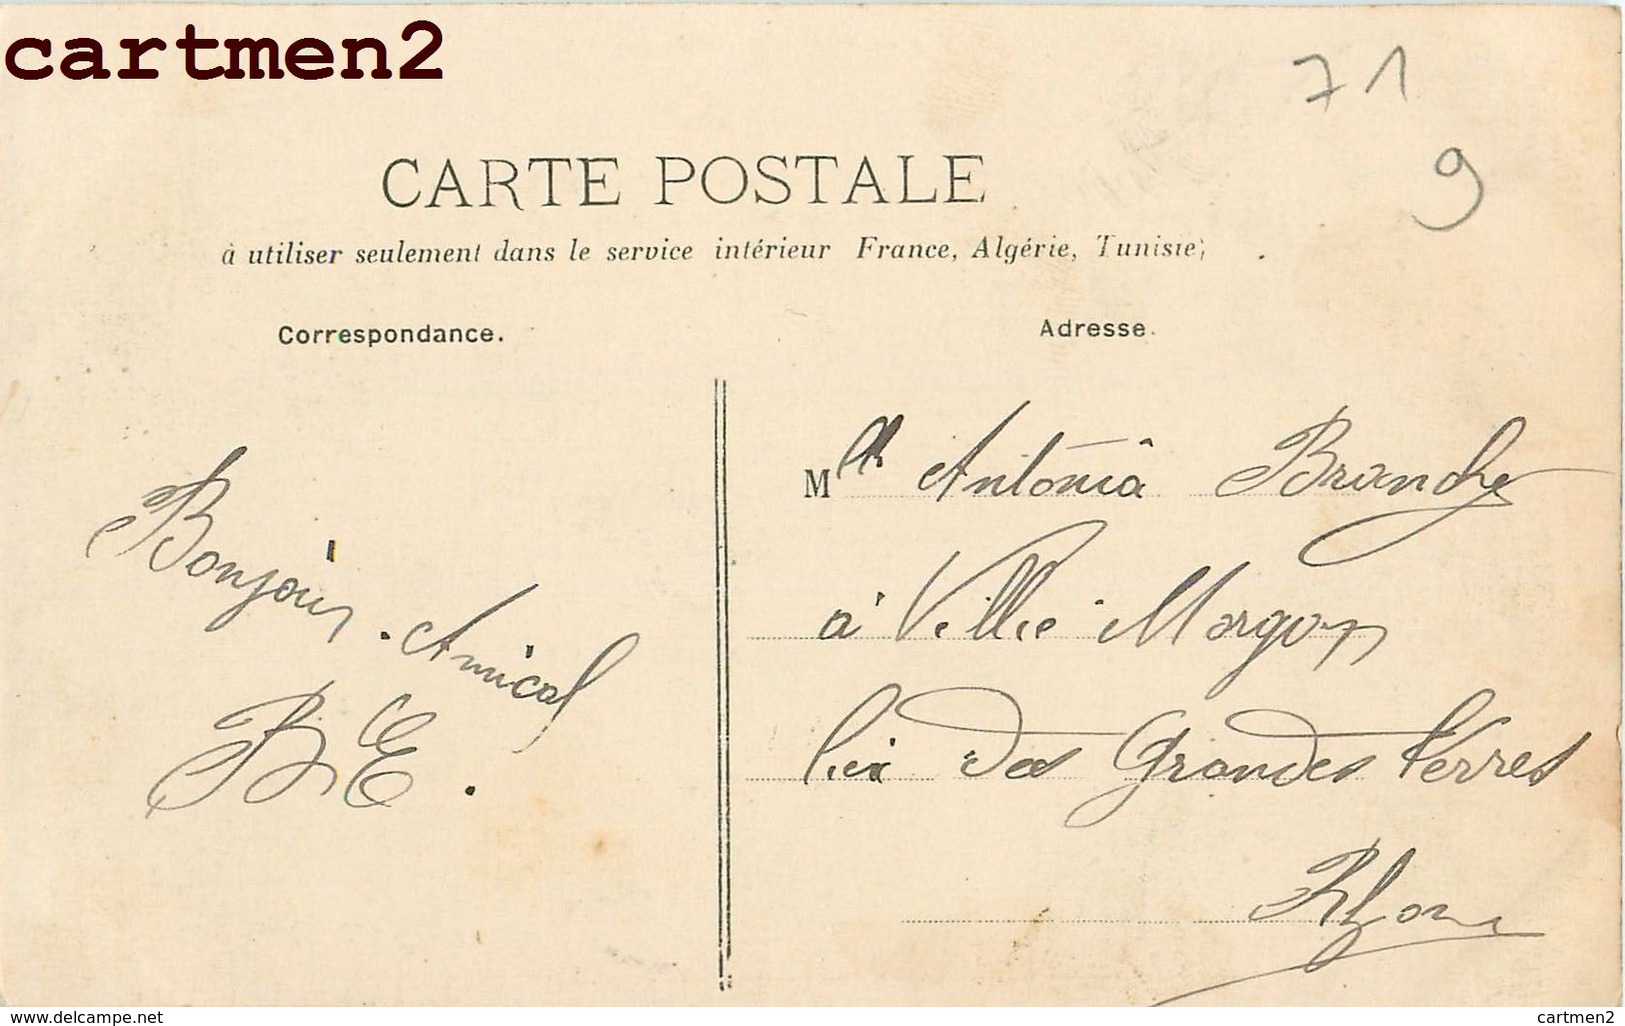 cartmen2
71
9
CARTE POSTALE
à utiliser seulement dans le service intérieur France, Algérie, Tunisie;
Correspondance.
Adresse.
Bonjour. Amical
B E.
Mlle Antonia Branche
à Villié Morgon
des Grandes Terres
Rhone
www.delcampe.net
cartmen2